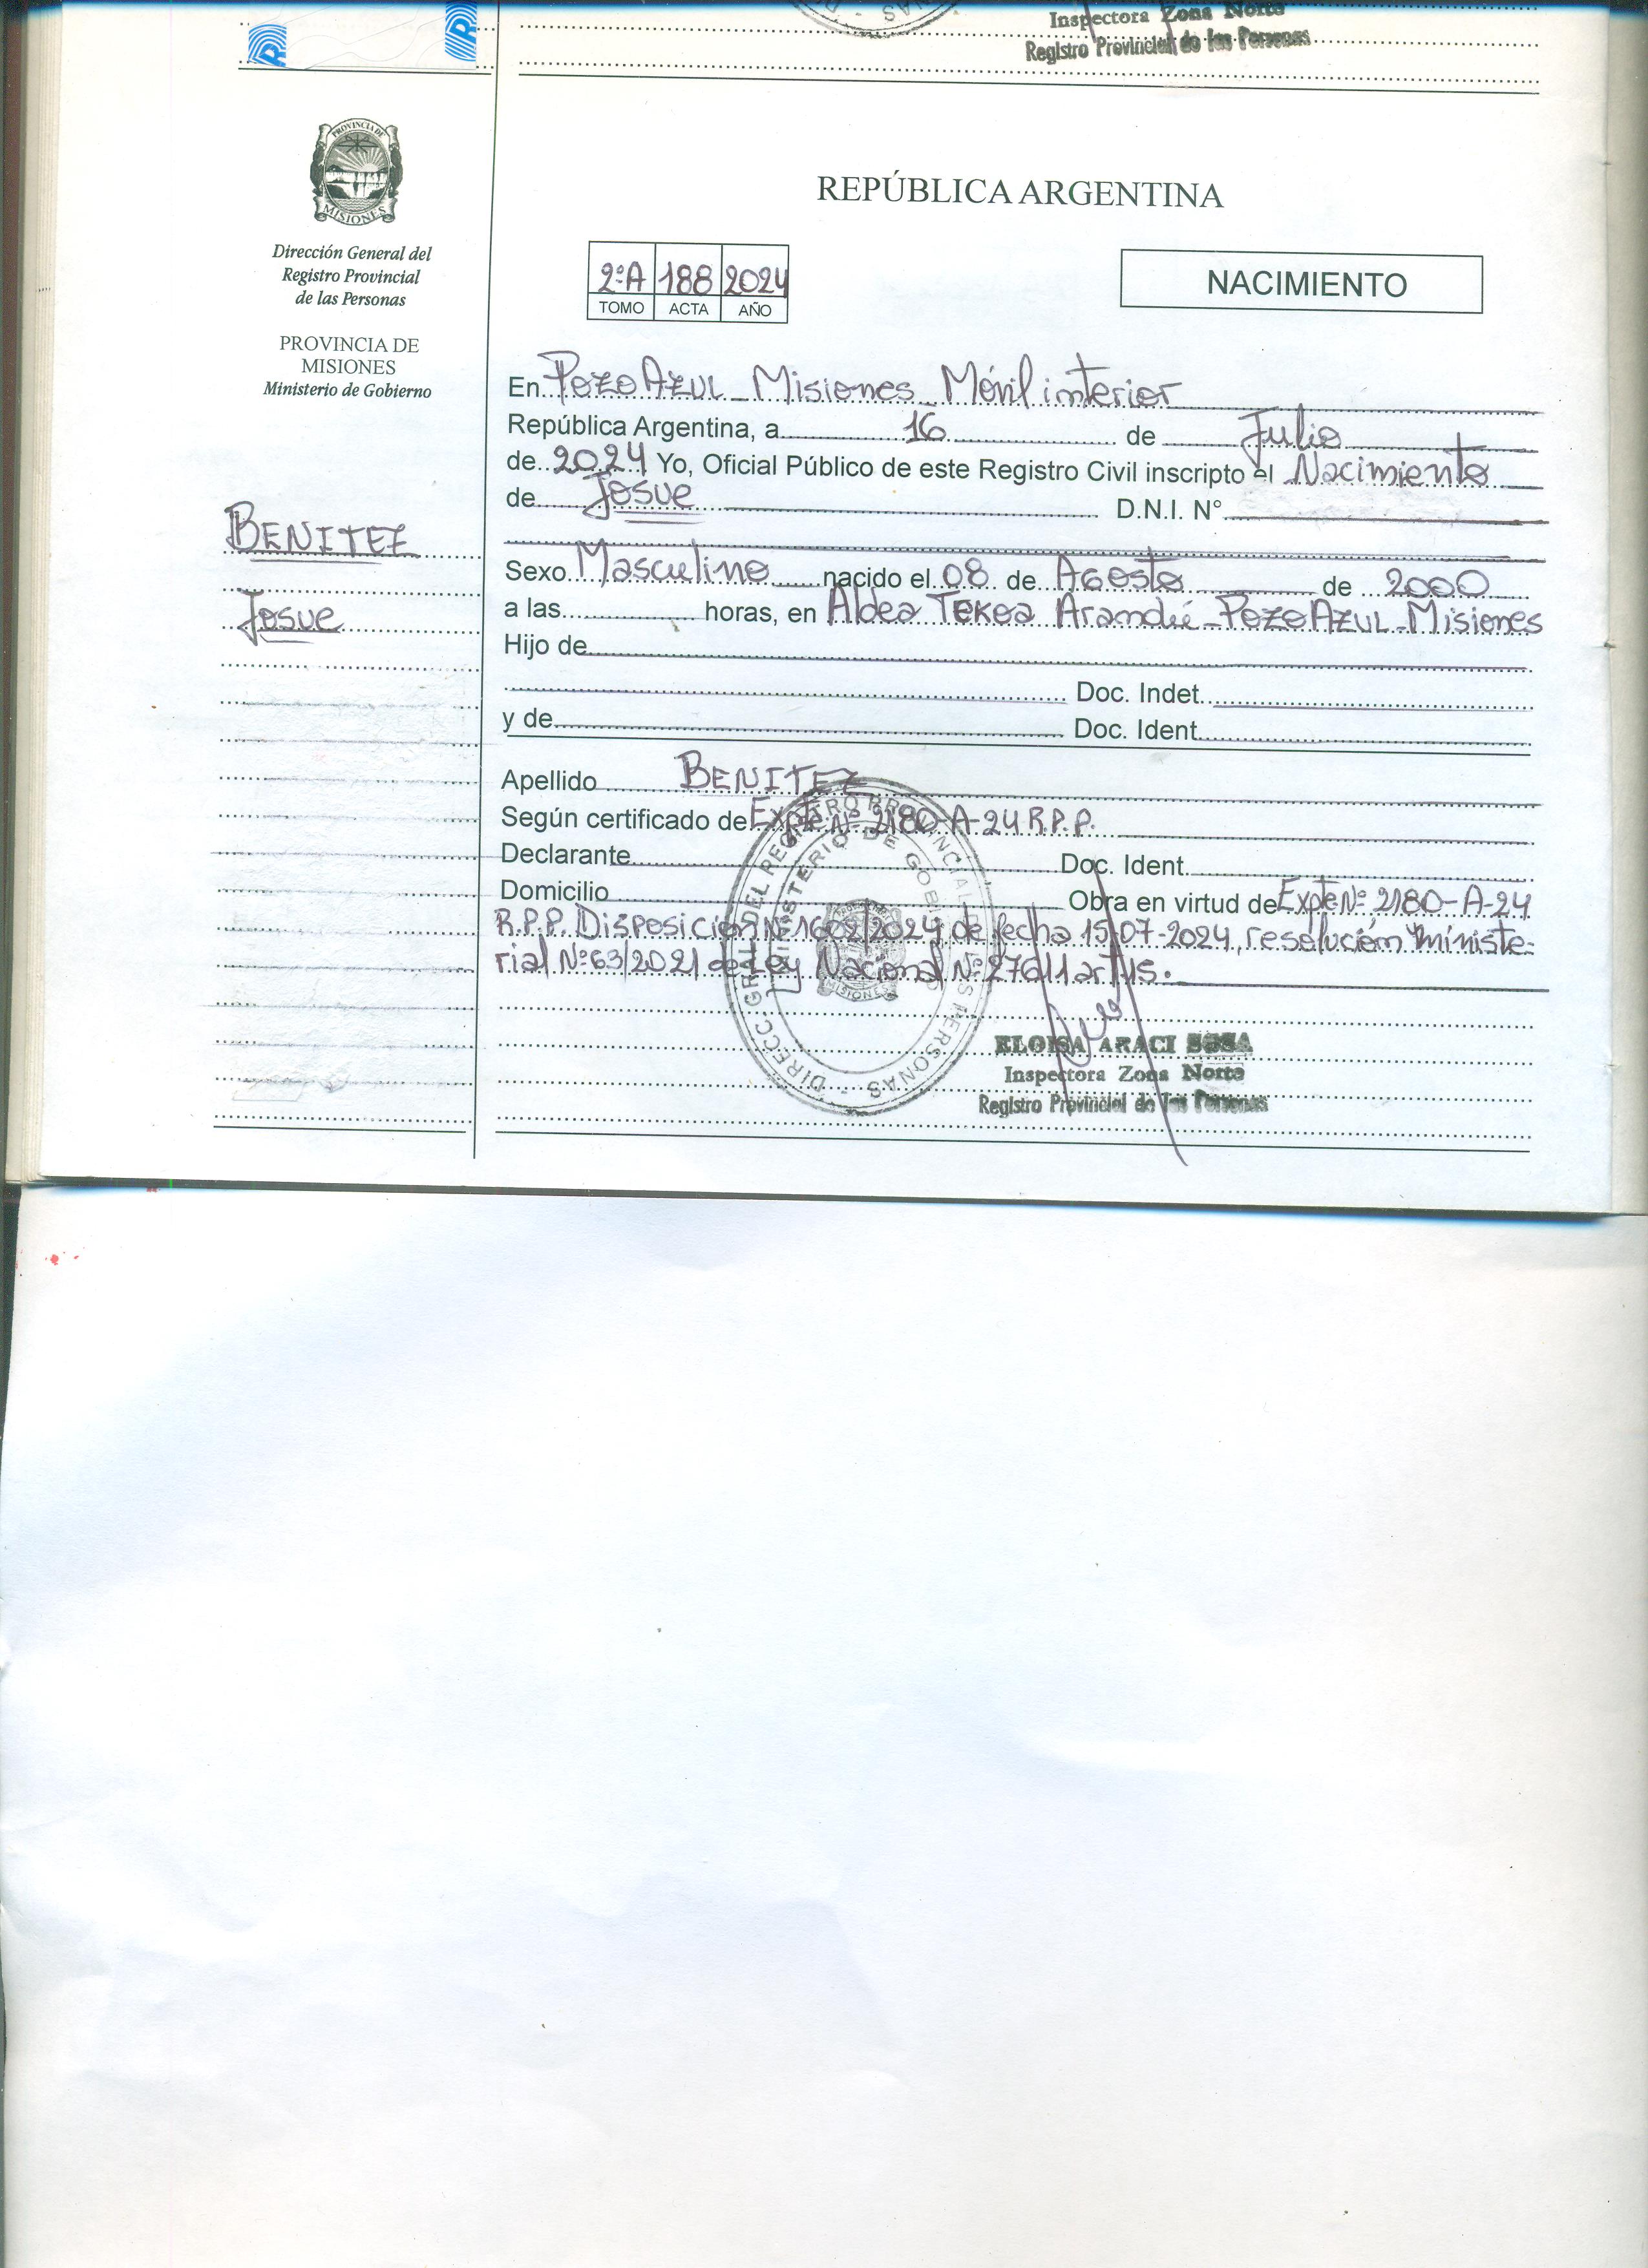 Inspectora Zona Norte
Registro Provincial de las Personas
PROVINCIA DE
MISIONES
Dirección General del
Registro Provincial
de las Personas
PROVINCIA DE
MISIONES
Ministerio de Gobierno
BENITEZ
Josue
REPÚBLICA ARGENTINA
2ºA 188 2024
TOMO ACTA AÑO
NACIMIENTO
En Pozo Azul - Misiones - Móvil interior
República Argentina, a 16 de Julio
de 2024 Yo, Oficial Público de este Registro Civil inscripto el Nacimiento
de Josue D.N.I. N°
Sexo Masculino nacido el 08 de Agosto de 2000
a las horas, en Aldea Tekoa Arandú - Pozo Azul - Misiones
Hijo de
Doc. Indet.
y de Doc. Ident.
Apellido BENITEZ
Según certificado de Expte Nº 2180-A-24 R.P.P.
Declarante Doc. Ident.
Domicilio Obra en virtud de Expte Nº 2180-A-24
R.P.P. Disposición Nº 1602/2024 de fecha 15-07-2024, resolución ministe-
rial Nº 63/2021 de Ley Nacional Nº 27611 art 15.
DIRECC. GRAL. DEL REGISTRO PROVINCIAL DE LAS PERSONAS
MINISTERIO DE GOBIERNO
MISIONES
ELOISA ARACI SOSA
Inspectora Zona Norte
Registro Provincial de las Personas